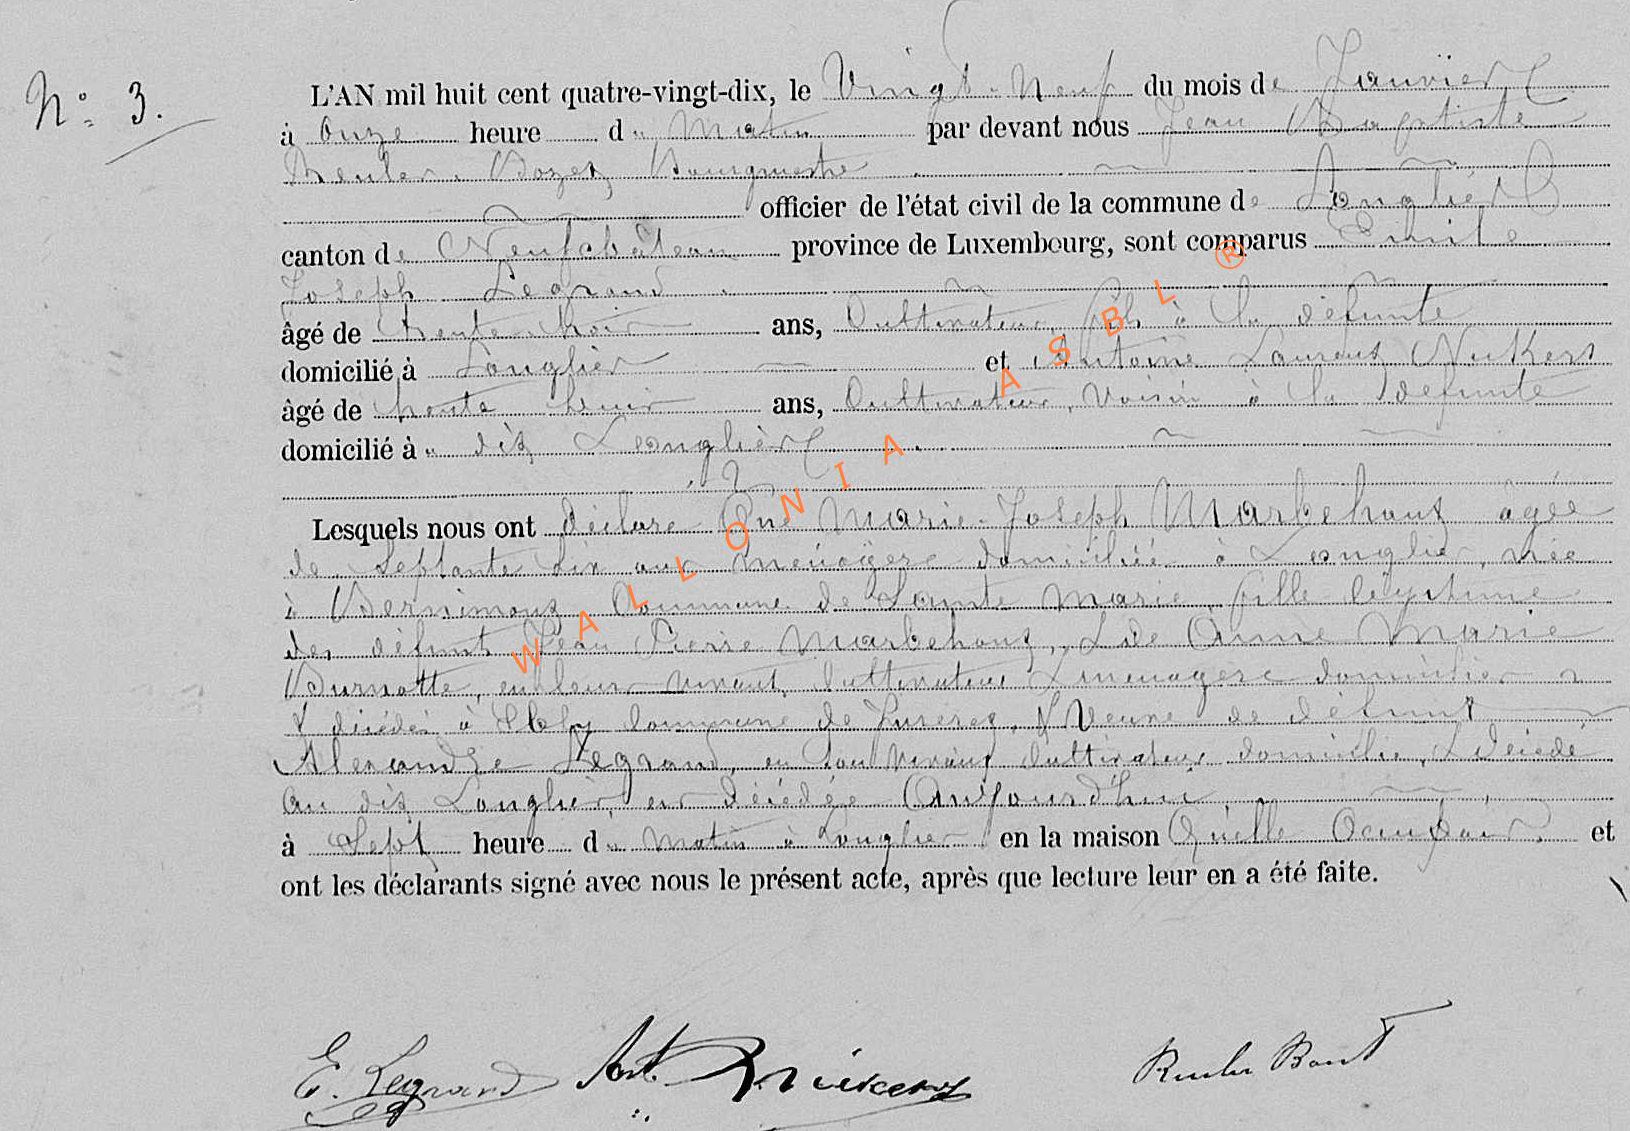 N° 3.
L'AN mil huit cent quatre-vingt-dix, le Vingt-Neuf du mois de Janvier
à Onze heure du Matin par devant nous Jean Baptiste
Bozet, Bourgmestre
officier de l'état civil de la commune de Longlier
canton de Neufchâteau province de Luxembourg, sont comparus Emile
Joseph Legrand
âgé de trente trois ans, Cultivateur, fils à la défunte
domicilié à Longlier et Antoine Laurent
âgé de trente ans, Cultivateur, Voisin à la défunte
domicilié à u dit Longlier
Lesquels nous ont déclaré Que Marie-Joseph Marbehant agée
de Septante Six ans ménagère domiciliée à Longlier, née
à Bernimont, Commune de Sainte Marie, fille légitime
des défunts Jean Pierre Marbehant, & de Anne Marie
Burnotte, en leur vivant, Cultivateur & ménagère domiciliés
& décédés à Commune de & Veuve de défunt
Alexandre Legrand, en son vivant Cultivateur domicilié, & décédé
au dit Longlier, est décédée Aujourd'hui,
à Sept heure du Matin à Longlier en la maison Qu'elle Occupait, et
ont les déclarants signé avec nous le présent acte, après que lecture leur en a été faite.
WALLONIA ASBL ®
E. Legrand Ant.